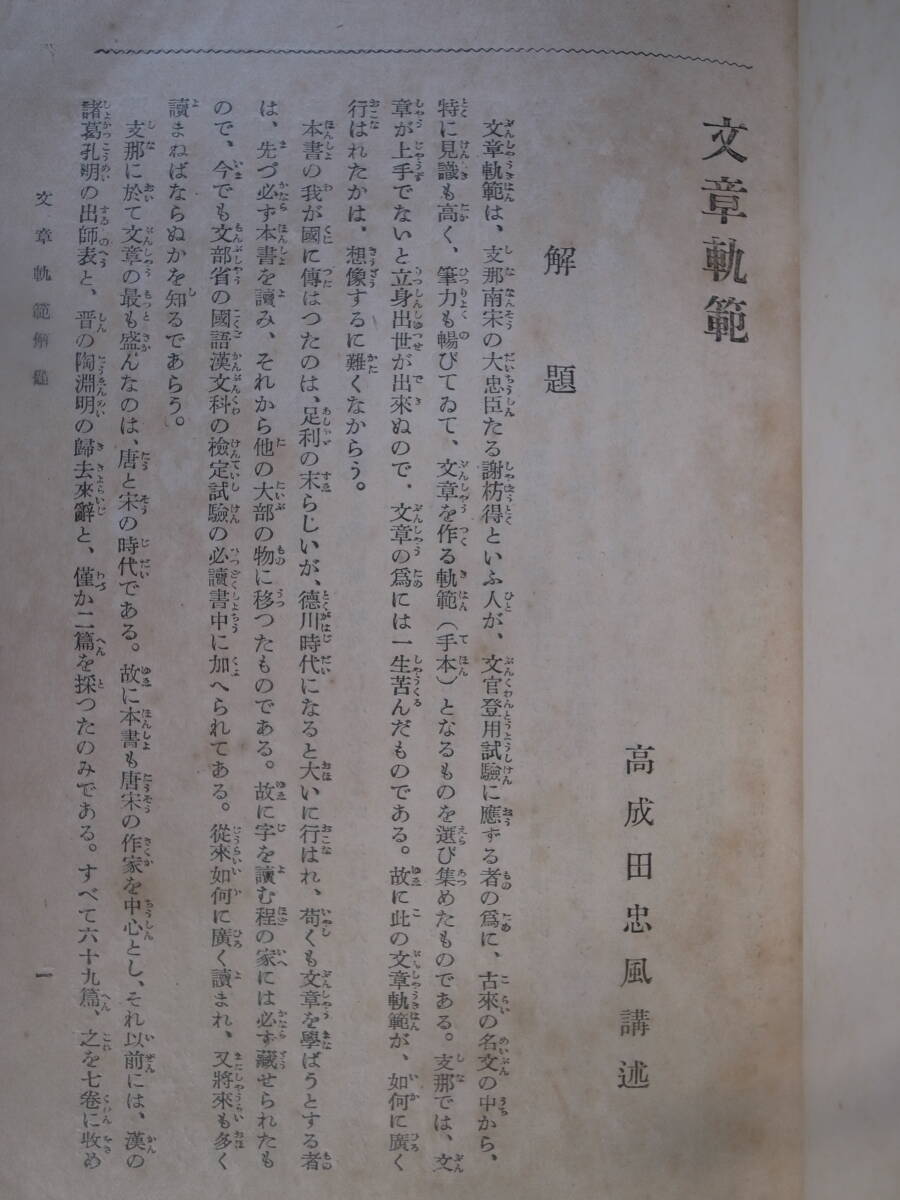 文章軌範
高成田忠風講述
解題
文章軌範は、支那南宋の大忠臣たる謝枋得といふ人が、文官登用試驗に應ずる者の爲に、古來の名文の中から、
特に見識も高く、筆力も暢びてゐて、文章を作る軌範(手本)となるものを選び集めたものである。支那では、文
章が上手でないと立身出世が出來ぬので、文章の爲には一生苦んだものである。故に此の文章軌範が、如何に廣く
行はれたかは、想像するに難くなからう。
本書の我が國に傳はつたのは、足利の末らしいが、德川時代になると大いに行はれ、苟くも文章を學ばうとする者
は、先づ必ず本書を讀み、それから他の大部の物に移つたものである。故に字を讀む程の家には必ず藏せられたも
ので、今でも文部省の國語漢文科の檢定試驗の必讀書中に加へられてある。從來如何に廣く讀まれ、又將來も多く
讀まねばならぬかを知るであらう。
支那に於て文章の最も盛んなのは、唐と宋の時代である。故に本書も唐宋の作家を中心とし、それ以前には、漢の
諸葛孔明の出師表と、晋の陶淵明の歸去來辭と、僅か二篇を採つたのみである。すべて六十九篇、之を七卷に收め
文章軌範解題
一